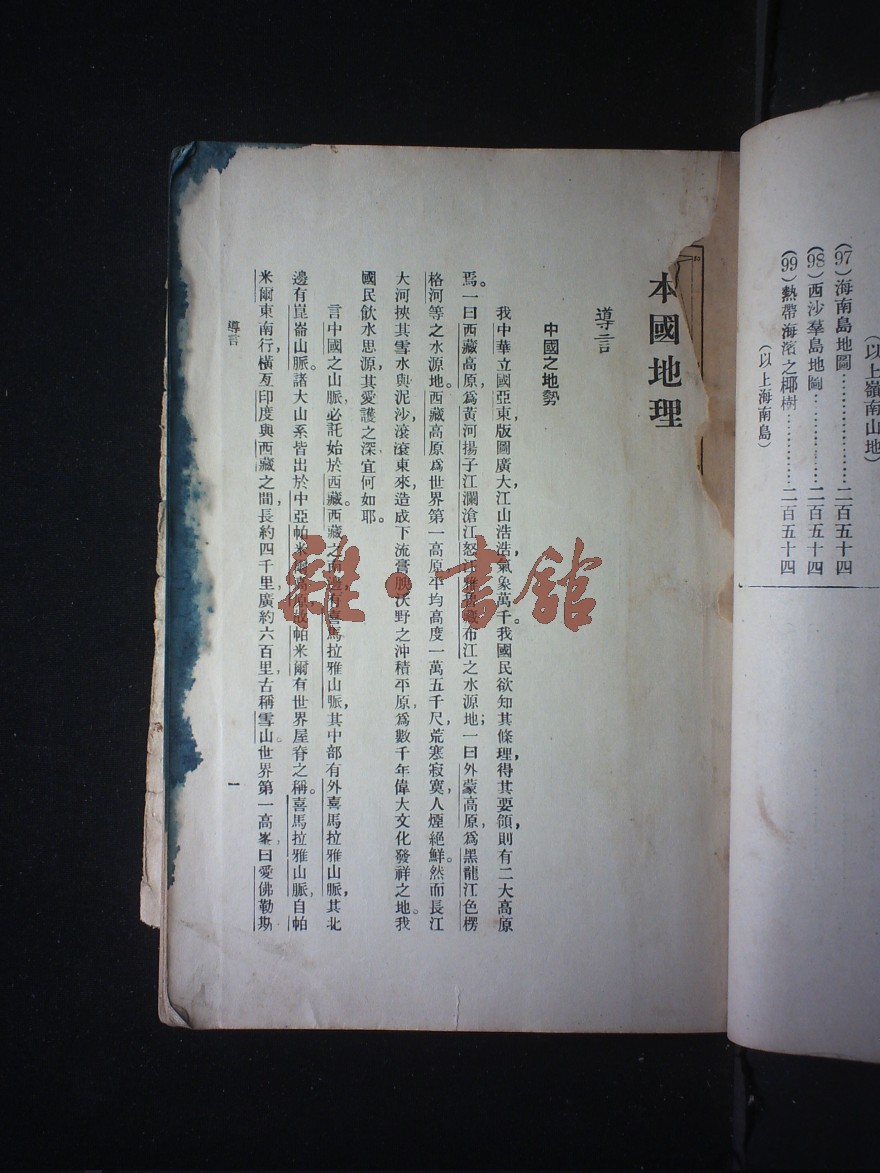 （以上嶺南山地）
（97）海南島地圖…………二百五十四
（98）西沙羣島地圖…………二百五十四
（99）熱帶海濱之椰樹…………二百五十四
（以上海南島）
本國地理
導言
中國之地勢
我中華立國亞東，版圖廣大，江山浩浩，氣象萬千。我國民欲知其條理，得其要領，則有二大高原
焉。一曰西藏高原，爲黃河揚子江瀾滄江怒江雅魯藏布江之水源地；一曰外蒙高原，爲黑龍江色楞
格河等之水源地。西藏高原爲世界第一高原，平均高度一萬五千尺，荒寒寂寞，人煙絕鮮。然而長江
大河挾其雪水與泥沙滾滾東來，造成下流膏腴沃野之沖積平原，爲數千年偉大文化發祥之地。我
國民飲水思源，其愛護之深宜何如耶。
言中國之山脈，必託始於西藏。西藏之南邊有喜馬拉雅山脈，其中部有外喜馬拉雅山脈，其北
邊有崑崙山脈。諸大山系皆出於中亞帕米爾高原，故帕米爾有世界屋脊之稱。喜馬拉雅山脈，自帕
米爾東南行，橫亙印度與西藏之間，長約四千里，廣約六百里，古稱雪山。世界第一高峯曰愛佛勒斯
導言
一
雜·書館